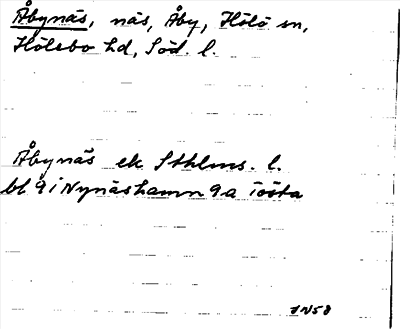 Åbynäs, näs, Åby, Hölö sn,
Hölebo hd, Söd. l.
Åbynäs ek Sthlms. l.
bl 9 i Nynäshamn 9a Tösta